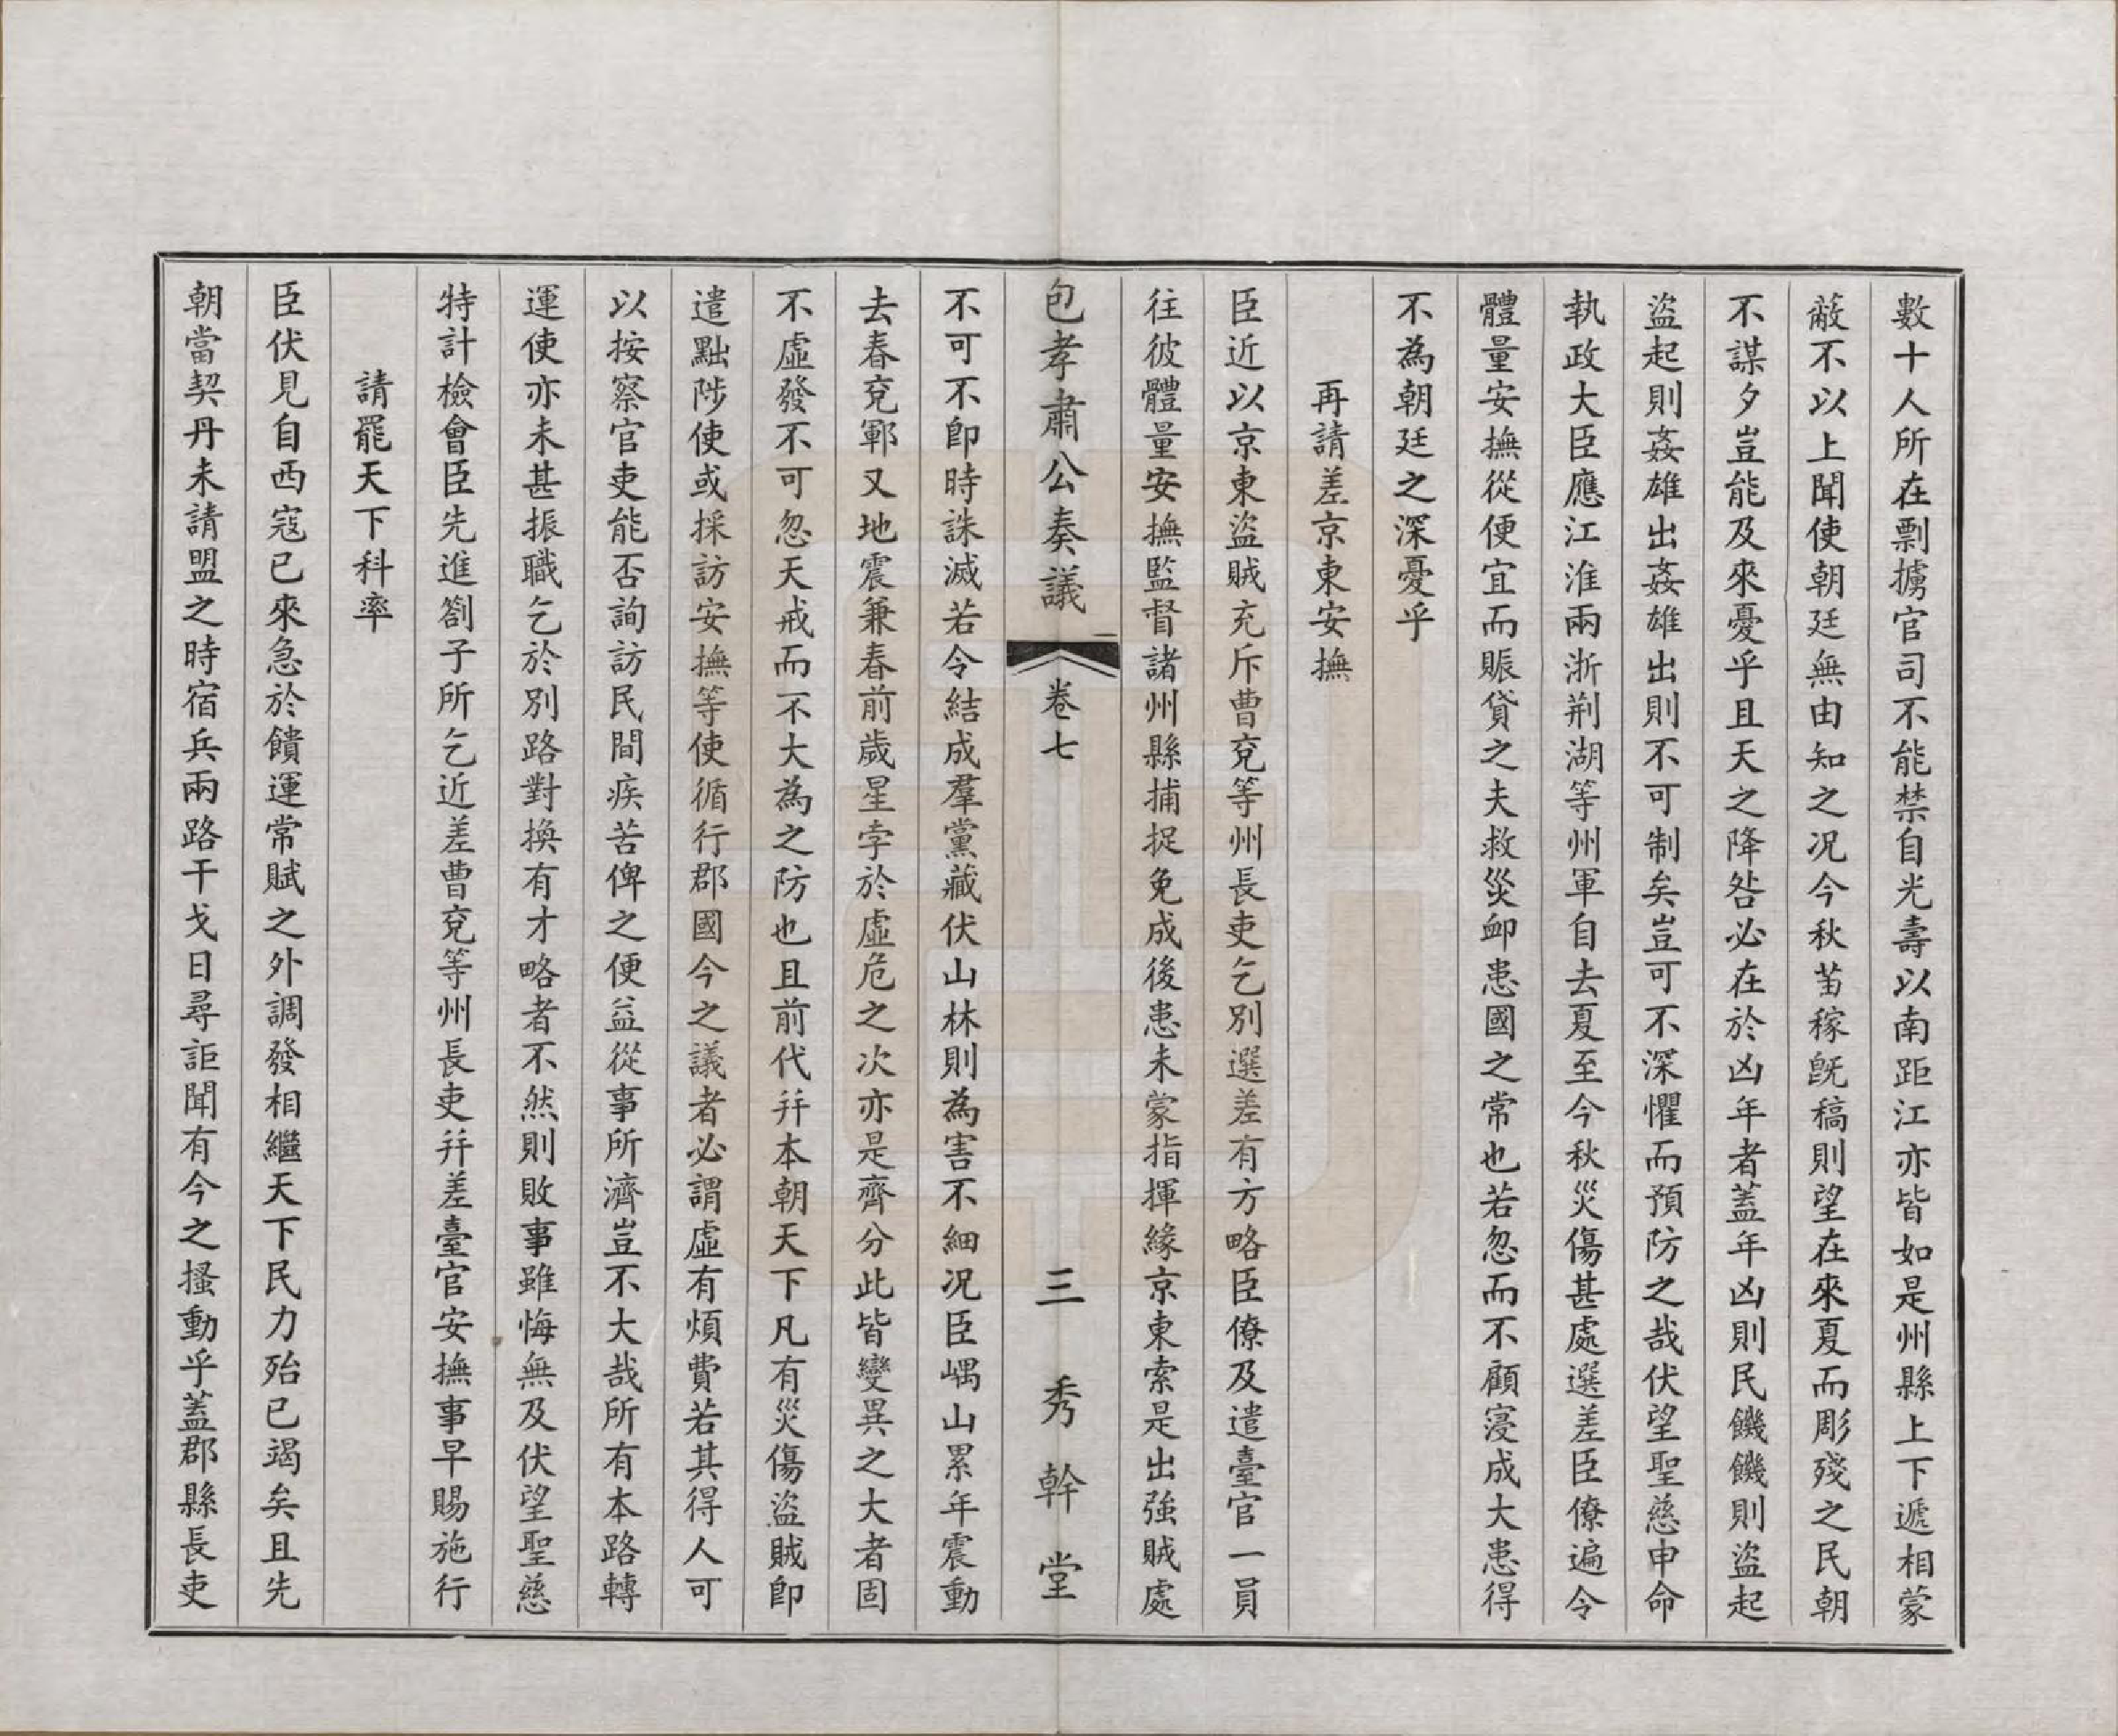 數十人所在剽擄官司不能禁自光壽以南距江亦皆如是州縣上下遞相蒙
蔽不以上聞使朝廷無由知之况今秋苗稼旣稿則望在來夏而彫殘之民朝
不謀夕豈能及來憂乎且天之降咎必在於凶年者蓋年凶則民饑饑則盜起
盜起則姦雄出姦雄出則不可制矣豈可不深懼而預防之哉伏望聖慈申命
執政大臣應江淮兩浙荆湖等州軍自去夏至今秋災傷甚處選差臣僚遍令
體量安撫從便宜而賑貸之夫救災䘏患國之常也若忽而不顧寖成大患得
不為朝廷之深憂乎
再請差京東安撫
臣近以京東盜賊充斥曹兗等州長吏乞別選差有方略臣僚及遣臺官一員
往彼體量安撫監督諸州縣捕捉免成後患未蒙指揮緣京東索是出強賊處
包孝肅公奏議 卷七 三 秀幹堂
不可不卽時誅滅若令結成羣黨藏伏山林則為害不細况臣嵎山累年震動
去春兗鄆又地震兼春前歲星孛於虛危之次亦是齊分此皆變異之大者固
不虛發不可忽天戒而不大為之防也且前代幷本朝天下凡有災傷盜賊卽
遣黜陟使或採訪安撫等使循行郡國今之議者必謂虛有煩費若其得人可
以按察官吏能否詢訪民間疾苦俾之便益從事所濟豈不大哉所有本路轉
運使亦未甚振職乞於別路對換有才略者不然則敗事雖悔無及伏望聖慈
特計檢會臣先進劄子所乞近差曹兗等州長吏幷差臺官安撫事早賜施行
請罷天下科率
臣伏見自西寇已來急於饋運常賦之外調發相繼天下民力殆已竭矣且先
朝當契丹未請盟之時宿兵兩路干戈日尋詎聞有今之搔動乎蓋郡縣長吏